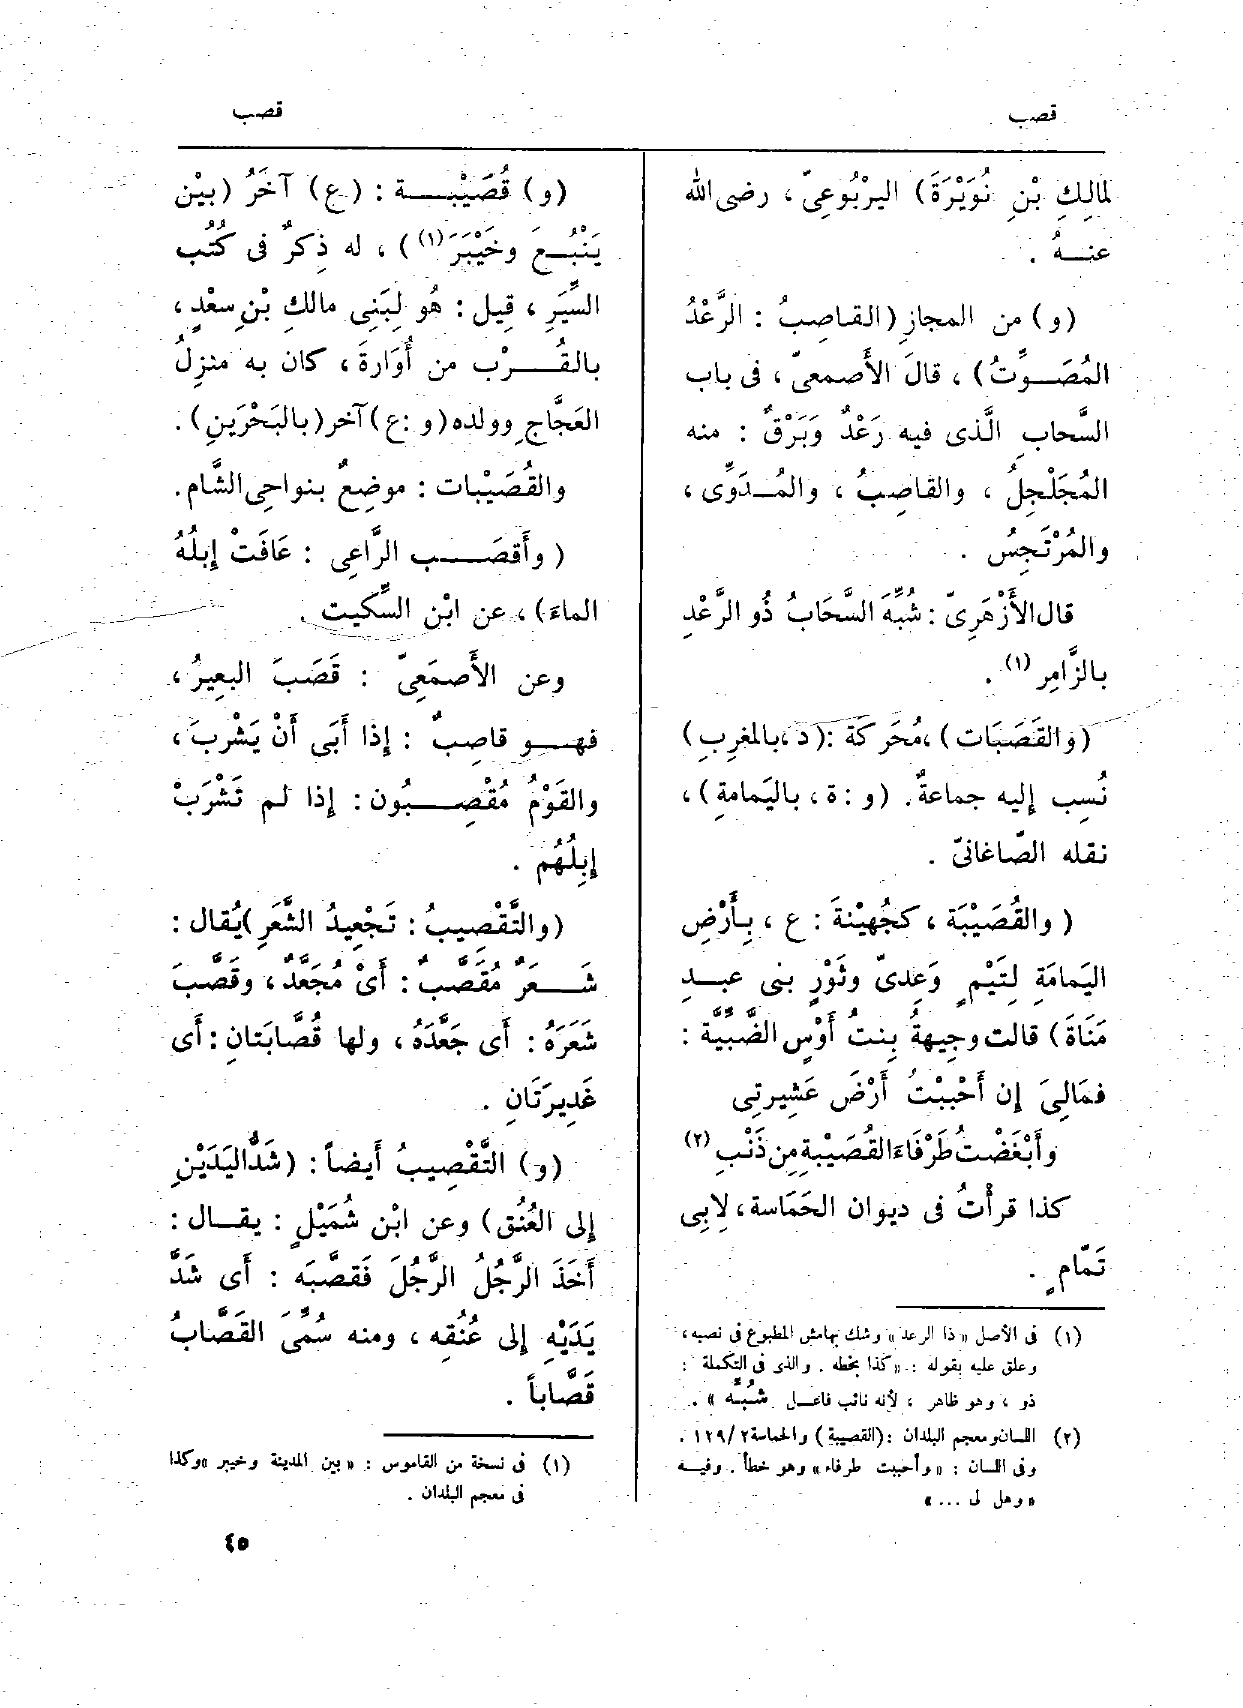 قصب
قصب
لمالِكِ بْنِ نُوَيْرَةَ) اليرْبُوعِىّ ، رضى الله
عنـهُ .
(و) من المجازِ (القـاصِبُ : الرَّعْدُ
المُصَـوِّتُ) ، قالَ الأَصمعىّ ، فى باب
السَّحابِ الَّذى فيه رَعْدٌ وَبَرْقٌ : منه
المُجَلْجِلُ ، والقاصِبُ ، والمُـدَوِّى ،
والمُرْتَجِسُ .
قال الأَزْهَرِىّ : شُبِّهَ السَّحَابُ ذُو الرَّعْدِ
بالزَّامِرِ (١) .
(والقَصَبَات) ، مُحَركة : (د ، بالمغرِبِ)
نُسِب إليه جماعةٌ . (و : ة ، باليَمامةِ) ،
نقله الصّاغانىّ .
( والقُصَيْبَة ، كجُهيْنةَ : ع ، بِأَرْضِ
اليَمامَةِ لِتَيْمٍ وَعَدِىّ وثَوْرٍ بنى عبـدِ
مَنَاةَ) قالت وجِيهةُ بِنتُ أَوْسٍ الضَّبِّيَّة :
فمَالِىَ إِن أَحْببْتُ أَرْضَ عَشِيرتِى
وأَبْغَضْتُ طَرْفَاءَ القُصَيْبةِ مِن ذَنْبِ (٢)
كذا قرأْتُ فى ديوان الحَمَاسة ، لِابِى
تَمّامٍ .
(١) فى الأصل « ذا الرعد » وشك بهامش المطبوع فى نصبه ،
وعلق عليه بقوله : « كذا بخطه . والذى فى التكملة :
ذو ، وهو ظاهر ، لأنه نائب فاعـل شُبِّه » .
(٢) اللسان ومعجم البلدان : (القصيبة) والحماسة ٢/ ١٢٩ .
وفى اللسان : « وأحببت طرفاء » وهو خطأ . وفيـه
« وهل لى ... »
(و) قُصَيْبـة : (ع) آخَرُ (بيْن
يَنْبُـعَ وخَيْبَرَ (١) ) ، له ذِكرٌ فى كُتُب
السِّيَرِ ، قِيل : هُو لِبَنِى مالكِ بْنِ سعْدٍ ،
بالقُـرْب من أُوَارةَ ، كان به منزِلُ
العَجَّاجِ وولده (و : ع) آخر (بالبَحْرَينِ) .
والقُصَيْبات : موضِعٌ بنواحِى الشَّام .
( وأَقصَـب الرَّاعِى : عَافَتْ إبِلُهُ
الماءَ) ، عن ابْن السِّكِيت .
وعن الأَصمَعِىّ : قَصَبَ البعِيرُ ،
فهـو قاصِبٌ : إذا أَبَى أَنْ يَشْربَ ،
والقَوْمُ مُقْصِـبُون : إذا لم تَشْرَبْ
إبِلُهُم .
(والتَّقْصِيبُ : تَجْعِيدُ الشَّعَرِ) يُقال :
شَـعَرٌ مُقَصَّبٌ : أَىْ مُجَعَّدٌ ، وقَصَّبَ
شَعَرَهُ : أَى جَعَّدَهُ ، ولها قُصَّابَتَانِ : أَى
غَدِيرَتَانِ .
(و) التَّقْصِيبُ أَيضاً : (شَدُّ اليَدَيْنِ
إلى العُنُق) وعن ابْن شُمَيْلٍ : يقـال :
أَخَذَ الرَّجُلُ الرَّجُلَ فَقصَّبَه : أَى شَدَّ
يَدَيْهِ إلى عُنُقِه ، ومنه سُمِّىَ القَصَّابُ
قَصَّاباً .
(١) فى نسخة من القاموس : « بين المدينة وخيبر » وكذا
فى معجم البلدان .
٤٥